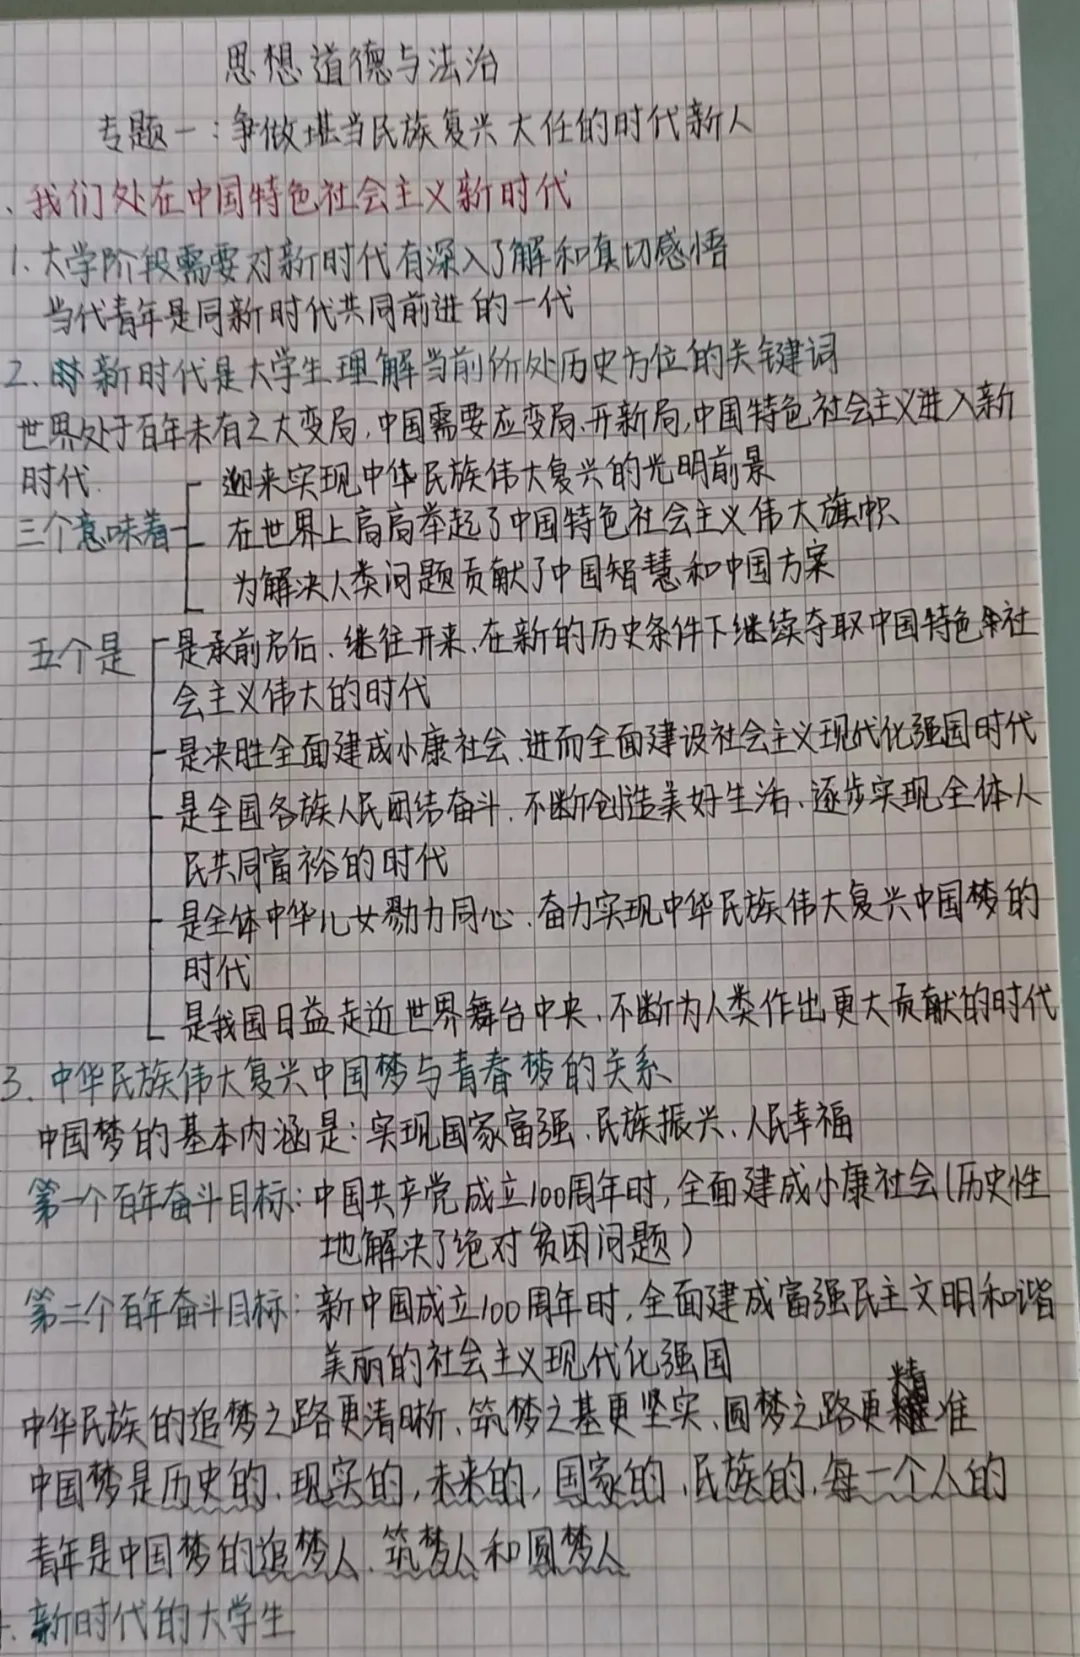 思想道德与法治
专题一：争做堪当民族复兴大任的时代新人
、我们处在中国特色社会主义新时代
1.大学阶段需要对新时代有深入了解和真切感悟
当代青年是同新时代共同前进的一代
2.新时代是大学生理解当前所处历史方位的关键词
世界处于百年未有之大变局,中国需要应变局、开新局,中国特色社会主义进入新
时代.
三个意味着
迎来实现中华民族伟大复兴的光明前景
在世界上高高举起了中国特色社会主义伟大旗帜
为解决人类问题贡献了中国智慧和中国方案
五个是
是承前启后、继往开来、在新的历史条件下继续夺取中国特色社
会主义伟大的时代
是决胜全面建成小康社会、进而全面建设社会主义现代化强国时代
是全国各族人民团结奋斗、不断创造美好生活、逐步实现全体人
民共同富裕的时代
是全体中华儿女勠力同心、奋力实现中华民族伟大复兴中国梦的
时代
是我国日益走近世界舞台中央、不断为人类作出更大贡献的时代
3.中华民族伟大复兴中国梦与青春梦的关系
中国梦的基本内涵是：实现国家富强、民族振兴、人民幸福
第一个百年奋斗目标：中国共产党成立100周年时,全面建成小康社会(历史性
地解决了绝对贫困问题)
第二个百年奋斗目标：新中国成立100周年时,全面建成富强民主文明和谐
美丽的社会主义现代化强国
中华民族的追梦之路更清晰、筑梦之基更坚实、圆梦之路更精准
中国梦是历史的、现实的,未来的,国家的、民族的,每一个人的
青年是中国梦的追梦人、筑梦人和圆梦人
.新时代的大学生